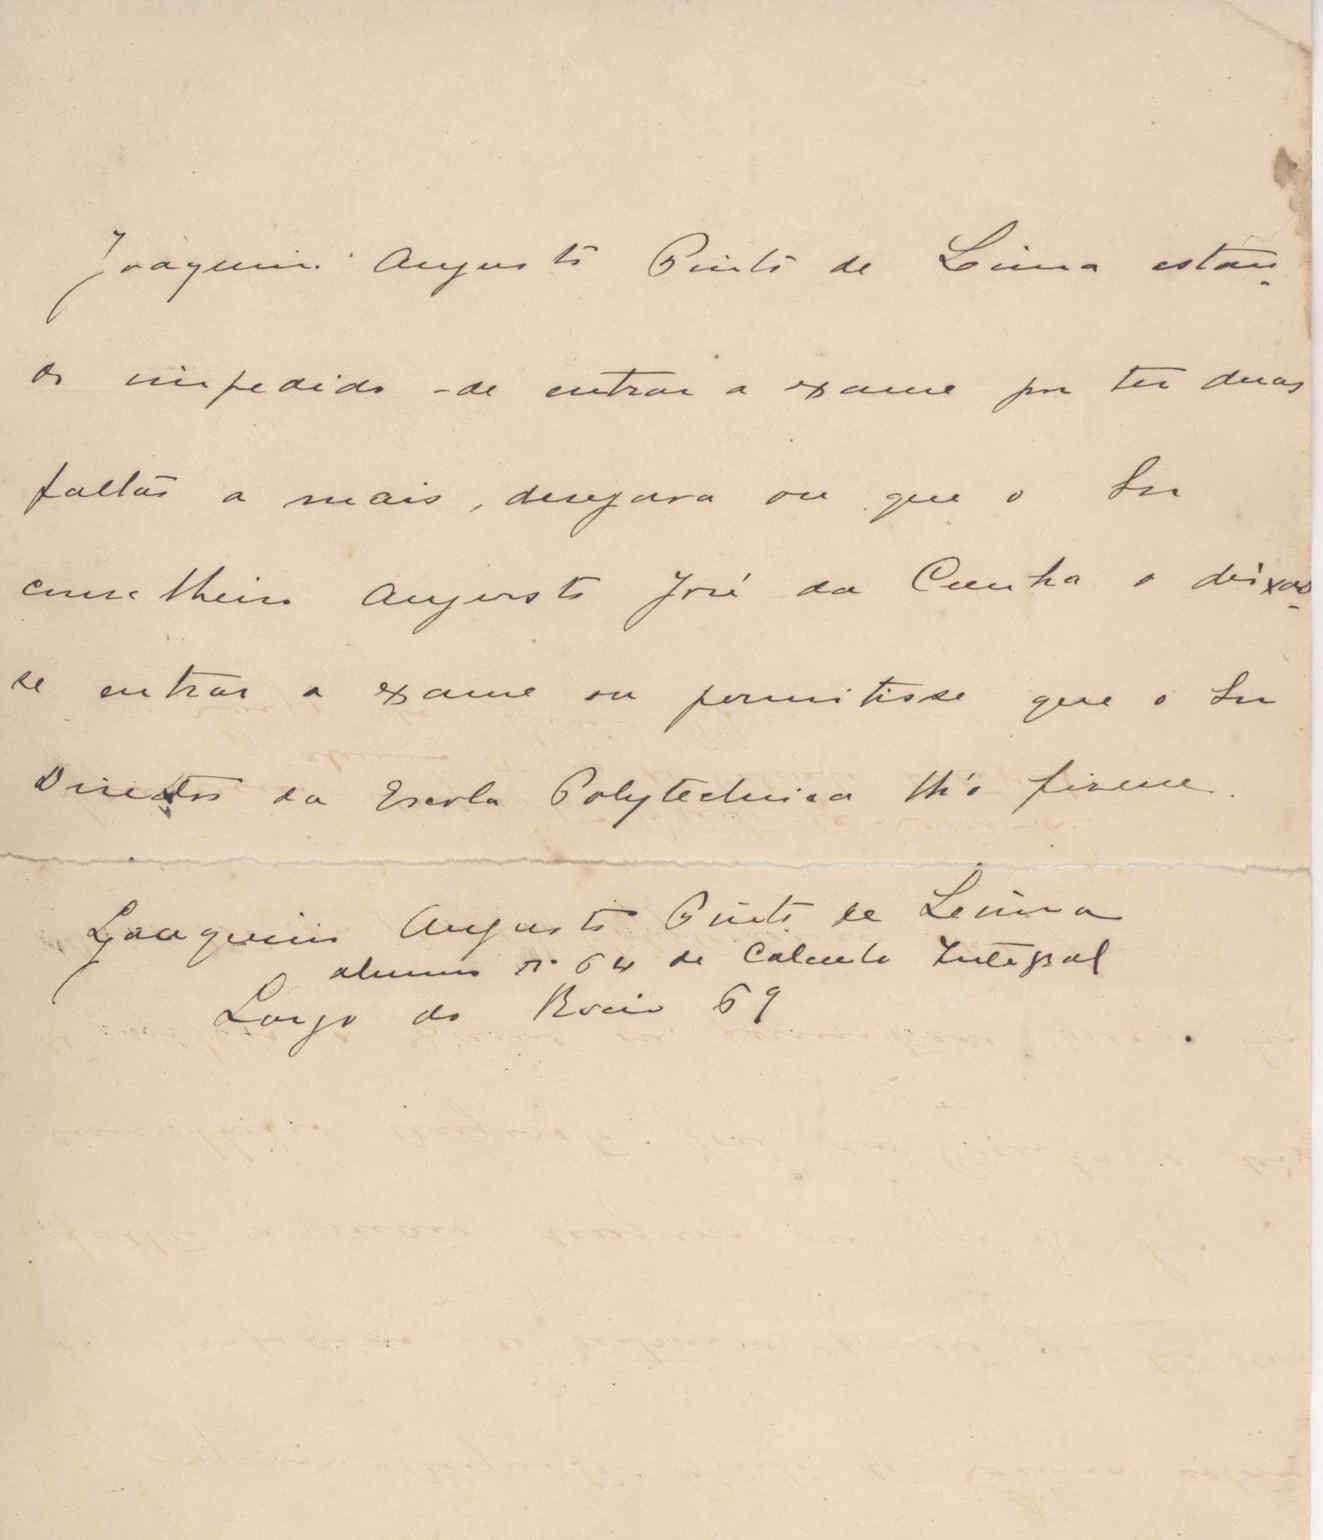 Joaquim Augusto Pinto de Lima estan-
do impedido de entrar a exame por ter duas
faltas a mais, desejava ou que o Snr
conselheiro Augusto José da Cunha o deixas-
se entrar a exame ou permitisse que o Snr
Director da Escola Polytechnica lh'o fizesse.
Joaquim Augusto Pinto de Lima
alumno nº 64 de Calculo Integral
Largo do Rocio 69